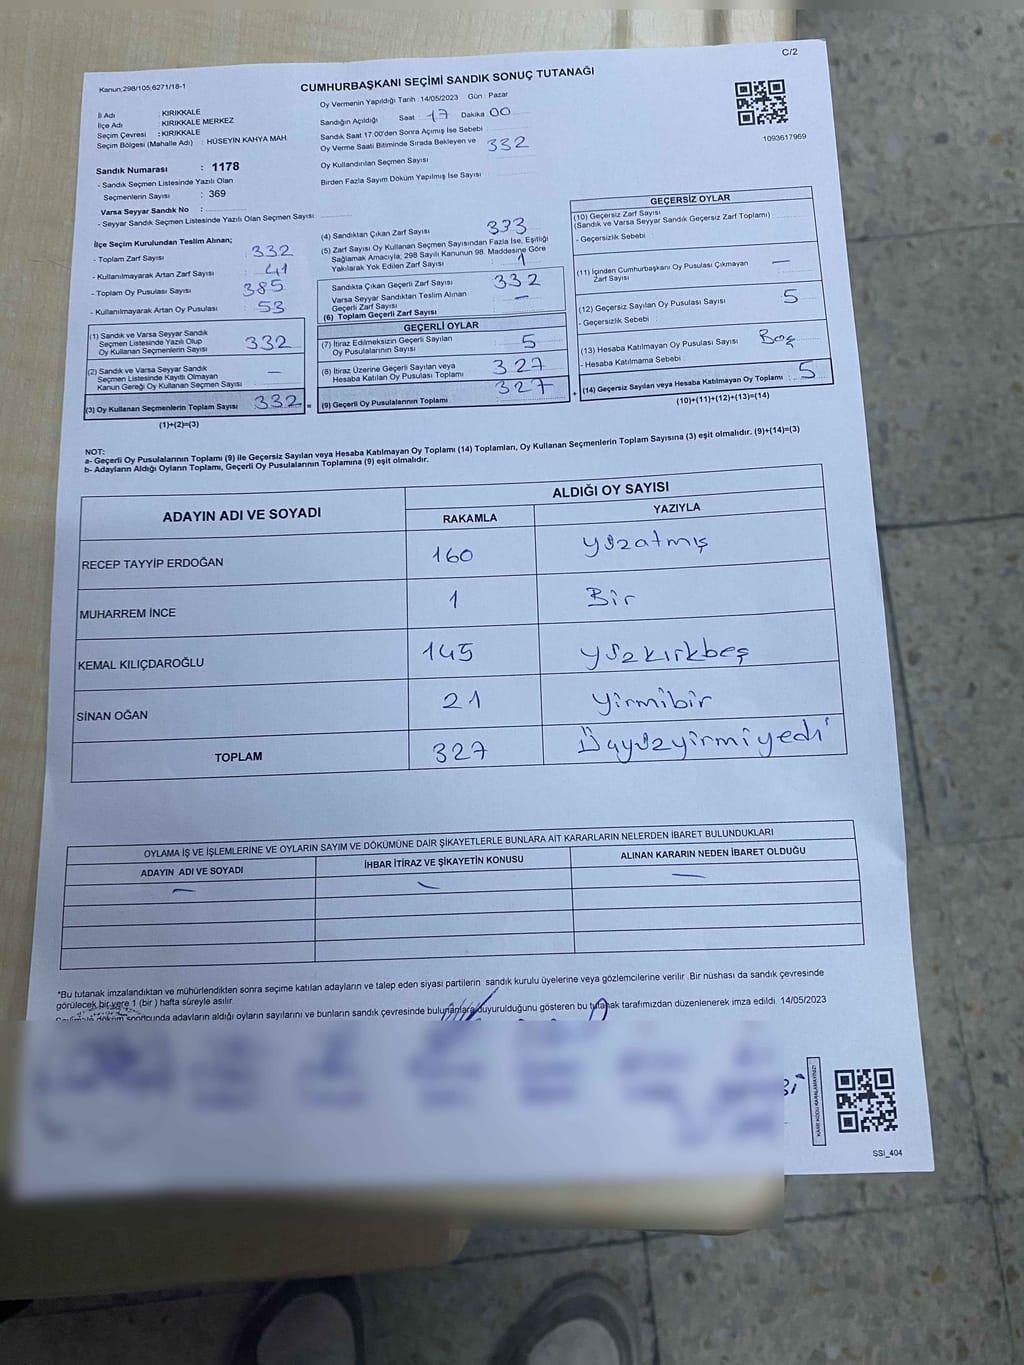 C/2
Kanun,298/105;6271/18-1
CUMHURBAŞKANI SEÇİMİ SANDIK SONUÇ TUTANAĞI
1093617969
İl Adı : KIRIKKALE
İlçe Adı : KIRIKKALE MERKEZ
Seçim Çevresi : KIRIKKALE
Seçim Bölgesi (Mahalle Adı) : HÜSEYİN KAHYA MAH.
Sandık Numarası : 1178
- Sandık Seçmen Listesinde Yazılı Olan
Seçmenlerin Sayısı : 369
Varsa Seyyar Sandık No :
- Seyyar Sandık Seçmen Listesinde Yazılı Olan Seçmen Sayısı:
Oy Vermenin Yapıldığı Tarih :14/05/2023 Gün : Pazar
Sandığın Açıldığı Saat 17 Dakika 00
Sandık Saat 17:00'den Sonra Açımış İse Sebebi
Oy Verme Saati Bitiminde Sırada Bekleyen ve 332
Oy Kullandırılan Seçmen Sayısı
Birden Fazla Sayım Döküm Yapılmış İse Sayısı
İlçe Seçim Kurulundan Teslim Alınan;
- Toplam Zarf Sayısı 332
- Kullanılmayarak Artan Zarf Sayısı 41
- Toplam Oy Pusulası Sayısı 385
- Kullanılmayarak Artan Oy Pusulası 53
(1) Sandık ve Varsa Seyyar Sandık
Seçmen Listesinde Yazılı Olup
Oy Kullanan Seçmenlerin Sayısı 332
(2) Sandık ve Varsa Seyyar Sandık
Seçmen Listesinde Kayıtlı Olmayan
Kanun Gereği Oy Kullanan Seçmen Sayısı —
(3) Oy Kullanan Seçmenlerin Toplam Sayısı 332 =
(1)+(2)=(3)
(4) Sandıktan Çıkan Zarf Sayısı 333
(5) Zarf Sayısı Oy Kullanan Seçmen Sayısından Fazla İse, Eşitliği
Sağlamak Amacıyla; 298 Sayılı Kanunun 98. Maddesine Göre
Yakılarak Yok Edilen Zarf Sayısı 1
Sandıkta Çıkan Geçerli Zarf Sayısı 332
Varsa Seyyar Sandıktan Teslim Alınan
Geçerli Zarf Sayısı —
(6) Toplam Geçerli Zarf Sayısı
GEÇERLİ OYLAR
(7) İtiraz Edilmeksizin Geçerli Sayılan
Oy Pusulalarının Sayısı 5
(8) İtiraz Üzerine Geçerli Sayılan veya
Hesaba Katılan Oy Pusulası Toplamı 327
(9) Geçerli Oy Pusulalarının Toplamı 327 +
GEÇERSİZ OYLAR
(10) Geçersiz Zarf Sayısı
(Sandık ve Varsa Seyyar Sandık Geçersiz Zarf Toplamı)
- Geçersizlik Sebebi :
(11) İçinden Cumhurbaşkanı Oy Pusulası Çıkmayan
Zarf Sayısı —
(12) Geçersiz Sayılan Oy Pusulası Sayısı 5
- Geçersizlik Sebebi :
(13) Hesaba Katılmayan Oy Pusulası Sayısı Boş
- Hesaba Katılmama Sebebi :
(14) Geçersiz Sayılan veya Hesaba Katılmayan Oy Toplamı : 5
(10)+(11)+(12)+(13)=(14)
NOT:
a- Geçerli Oy Pusulalarının Toplamı (9) ile Geçersiz Sayılan veya Hesaba Katılmayan Oy Toplamı (14) Toplamları, Oy Kullanan Seçmenlerin Toplam Sayısına (3) eşit olmalıdır. (9)+(14)=(3)
b- Adayların Aldığı Oyların Toplamı, Geçerli Oy Pusulalarının Toplamına (9) eşit olmalıdır.
ADAYIN ADI VE SOYADI ALDIĞI OY SAYISI
RAKAMLA YAZIYLA
RECEP TAYYİP ERDOĞAN 160 yüzatmış
MUHARREM İNCE 1 Bir
KEMAL KILIÇDAROĞLU 145 yüzkırkbeş
SİNAN OĞAN 21 yirmibir
TOPLAM 327 Üçyüzyirmiyedi
OYLAMA İŞ VE İŞLEMLERİNE VE OYLARIN SAYIM VE DÖKÜMÜNE DAİR ŞİKAYETLERLE BUNLARA AİT KARARLARIN NELERDEN İBARET BULUNDUKLARI
ADAYIN ADI VE SOYADI İHBAR İTİRAZ VE ŞİKAYETİN KONUSU ALINAN KARARIN NEDEN İBARET OLDUĞU
— — —
*Bu tutanak imzalandıktan ve mühürlendikten sonra seçime katılan adayların ve talep eden siyasi partilerin sandık kurulu üyelerine veya gözlemcilerine verilir .Bir nüshası da sandık çevresinde
görülecek bir yere 1 (bir ) hafta süreyle asılır.
döküm sonucunda adayların aldığı oyların sayılarını ve bunların sandık çevresinde bulunanlara duyurulduğunu gösteren bu tutanak tarafımızdan düzenlenerek imza edildi. 14/05/2023
KARE KODU KARALAMAYINIZ!
SSI_404